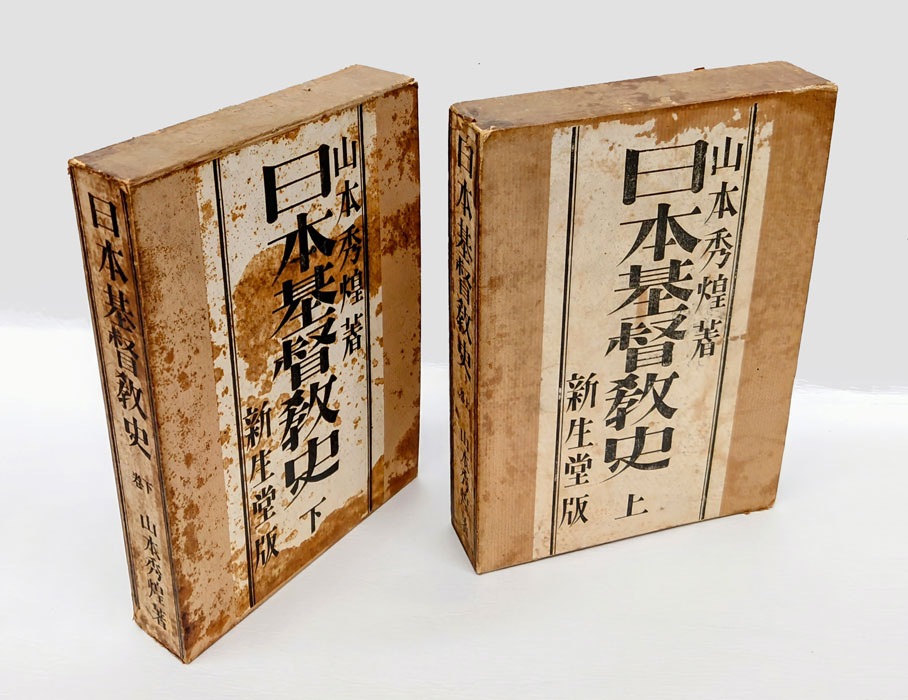 日本基督教史 下巻 山本秀煌著
山本秀煌著
日本基督教史 下
新生堂版
日本基督教史 上巻 山本秀煌著
山本秀煌著
日本基督教史 上
新生堂版